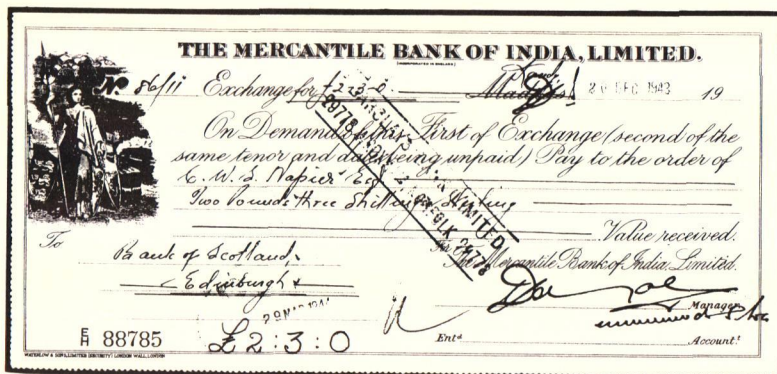 THE MERCANTILE BANK OF INDIA, LIMITED.
(INCORPORATED IN ENGLAND)
No 86/11 Exchange for £2-3-0. 20 DEC 1943 19
On Demand First of Exchange (second of the
same tenor and date being unpaid) Pay to the order of
C. W. S. Napier Esq
Two Pounds three Shillings Sterling
Value received.
To Bank of Scotland, For The Mercantile Bank of India, Limited.
Edinburgh
BARCLAYS BANK LIMITED
NORFOLK
Manager
E/H 88785 £2:3:0 Entd Accountt
WATERLOW & SONS LIMITED (SECURITY) LONDON WALL, LONDON